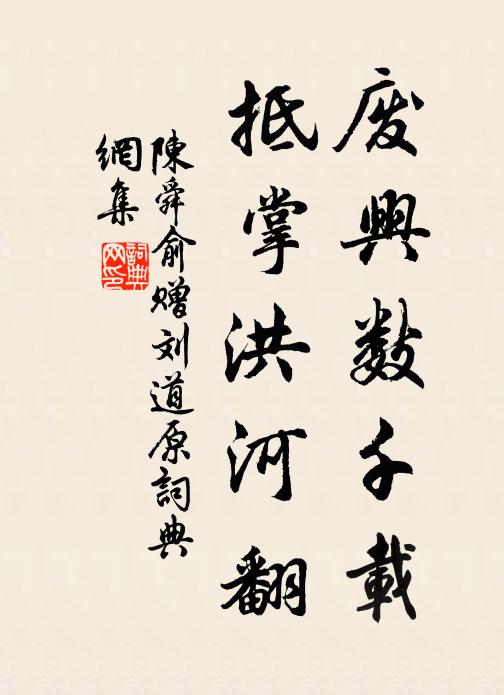 废興数千載
抵掌洪河翻
陳舜俞赠刘道原詞典
網集
詞典
网印